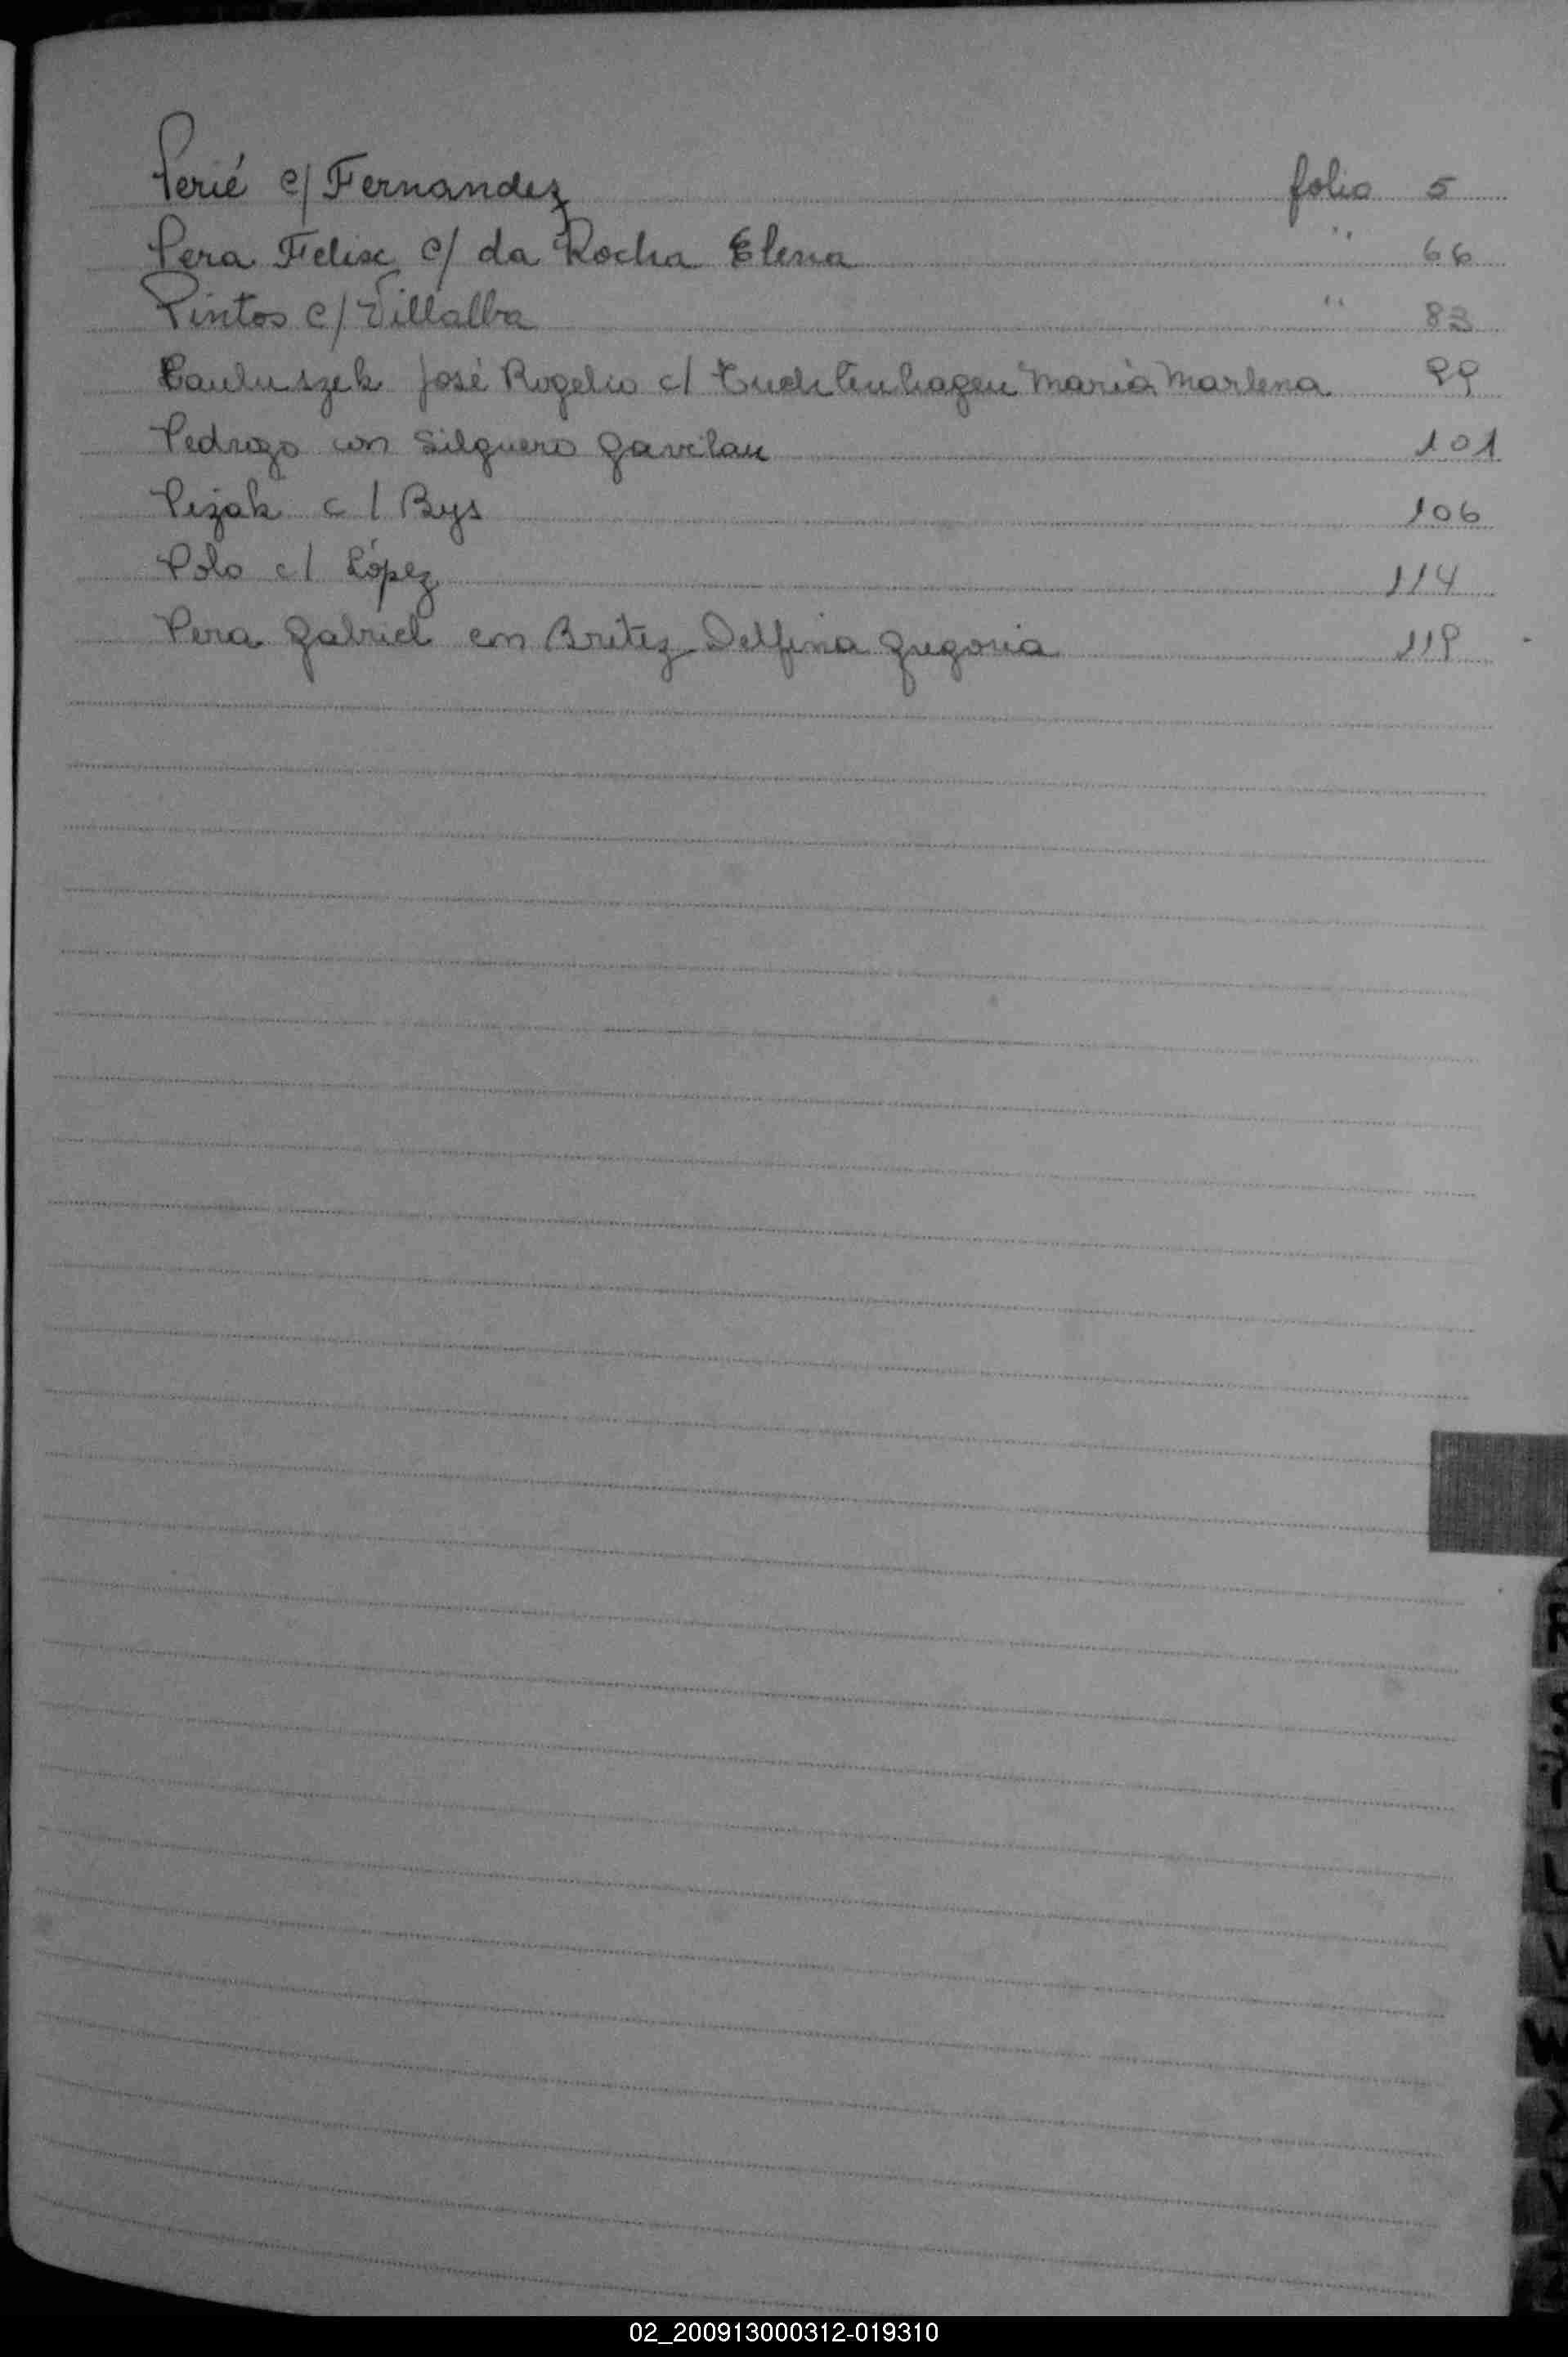 Perié c/ Fernandez folio 5
Pera Felix c/ da Rocha Elena " 66
Pintos c/ Villalba " 83
Pauluszek José Rogelio c/ Tuchtenhagen Maria Marlena 99
Pedrozo con Silguero Gavilan 101
Pezak c/ Bys 106
Polo c/ López 114
Pera Gabriel con Britez Delfina Gregoria 119
R
S
T
U
V
W
X
Y
Z
02_200913000312-019310